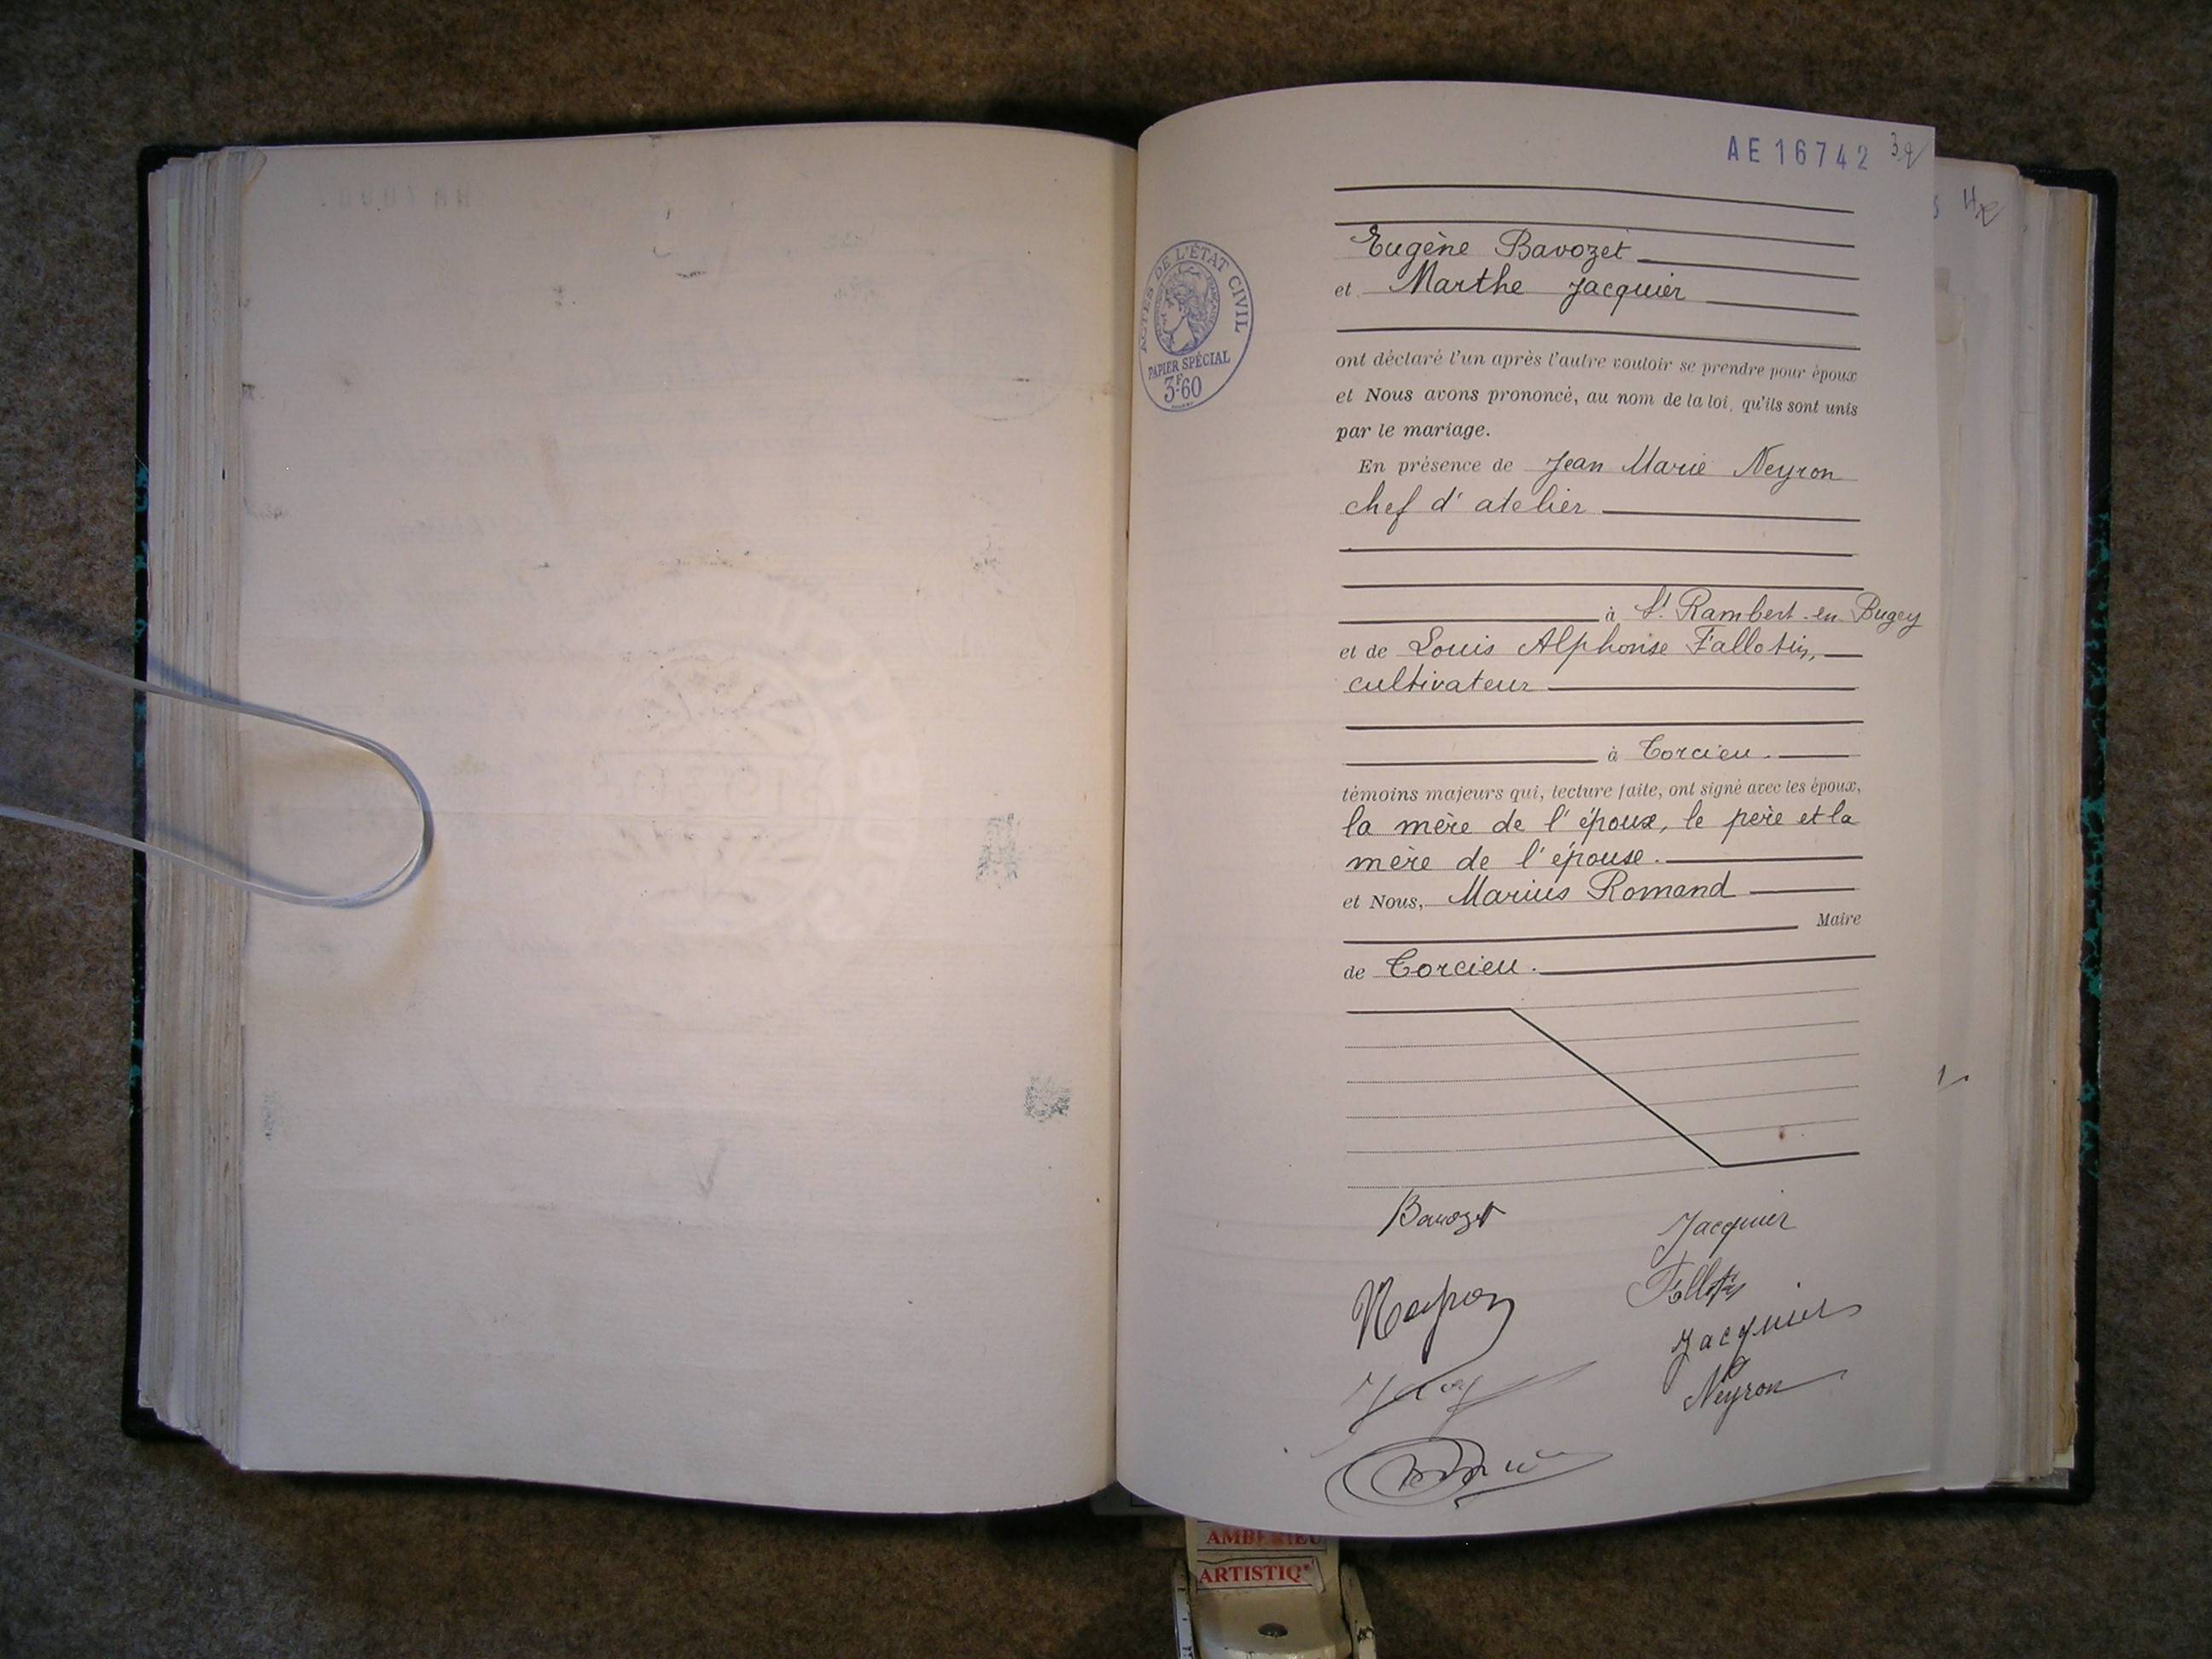 AE16742
Eugène Bavozet
et Marthe Jacquier
ACTES DE L'ÉTAT CIVIL
PAPIER SPÉCIAL
3F60
ont déclaré l'un après l'autre vouloir se prendre pour époux
et Nous avons prononcé, au nom de la loi, qu'ils sont unis
par le mariage.
En présence de Jean Marie Neyron
chef d'atelier
à St Rambert-en-Bugey
et de Louis Alphonse Fallotin,
cultivateur
à Torcieu.
témoins majeurs qui, lecture faite, ont signé avec les époux,
la mère de l'époux, le père et la
mère de l'épouse.
et Nous, Marius Romand
Maire
de Torcieu.
Bavozet
Jacquier
Neyron
Fallotin
Jacquier
Neyron
AMBERIEU
ARTISTIQ